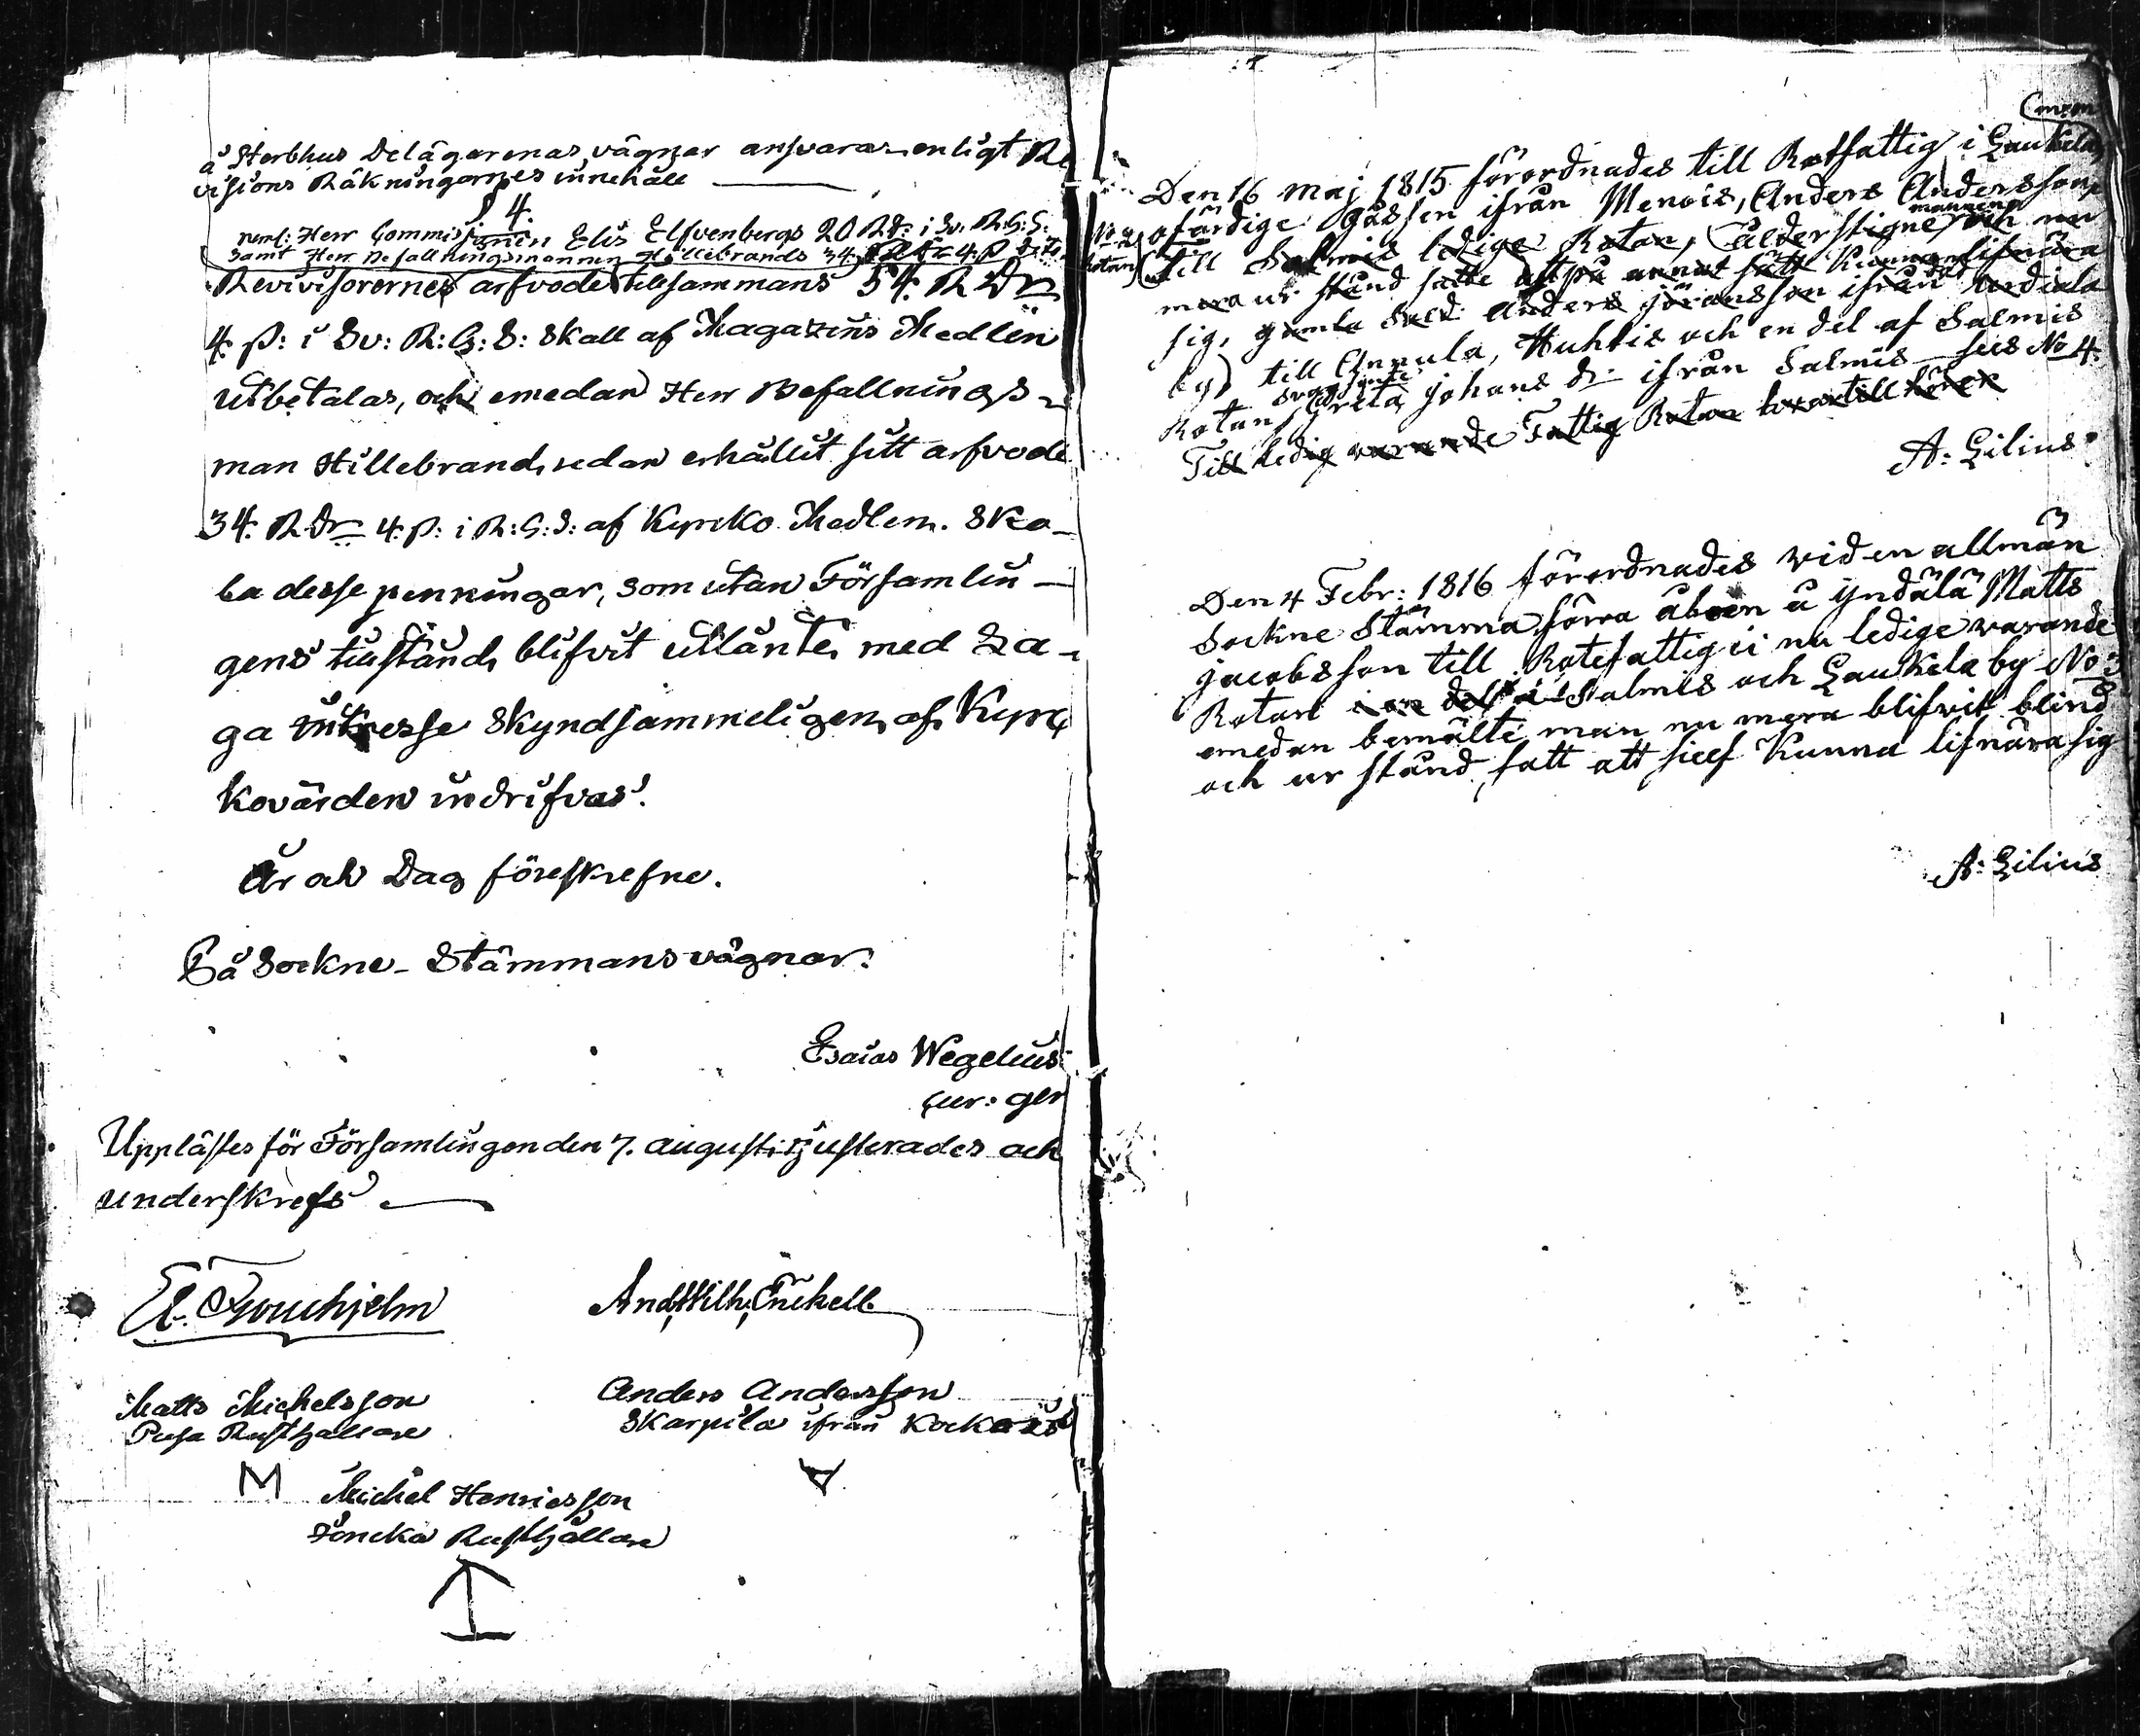 å Sterbhus Delägarenas vägnar ansvaras enligt Re
visions Räkningarnes innehåll
§ 4.
neml: Herr Commissarien Elis Elfvenbergs 20 RD: i Sv: R:G:S:
samt Herr Befallningsmannen Hillebrands 34
Revisorernes arfvode tillsammans 54. R Dr
4 ß: i Sv: R:G:S: skall af Magazins Medlen
utbetalas, och emedan Herr Befallnings-
man Hillebrand redan erhållit sitt arfvode
34. R Dr 4. ß: i R:G:S: af Kyrko Medlen. Sko-
la desse penningar, som utan Församlin-
gens tillstånd blifvit utlånte, med La-
ga intresse skyndsammeligen af Kyr-
kovärden indrifvas.
År och Dag föreskrefne.
På Sockne-Stämmans vägnar:
Esaias Wegelius
Upplästes för Församlingen den 7. augusti, justerades och
underskrefs
And. Wilh. Enckell
Matts Michelsson
Pusa Rusthållare
Anders Andersson
Skarpila ifrån Kockois
M
A
Michel Henricsson
Joncka Rusthållare
Den 16 Maj 1815 förordnades till Rotfattig i Laukila
ofärdige Gåssen ifrån Menois, Anders Andersson
till Salmis ledige Rotan, ålderstigne och nu
mannens
mera ur stånd satte att på annat sätt kunna lifnära
sig, gamla Sold: Anders Jöransson ifrån
by till Annula, Huhtis och en del af Salmis
Rotan, Greta Johans Dr ifrån Salmis No 4.
Till ledig varande Fattig Rotan hvartill hörer
A: Lilius
Den 4 Febr: 1816 förordnades vid en allmän
Sockne Stämma förra åboen å Yndälä Matts
Jacobsson till Rotefattig i nu ledige varande
Rotan i en del i Salmis och Laukila by No 3
emedan bemälte man nu mera blifvit blind
och ur stånd satt att sielf kunna lifnära sig
A: Lilius